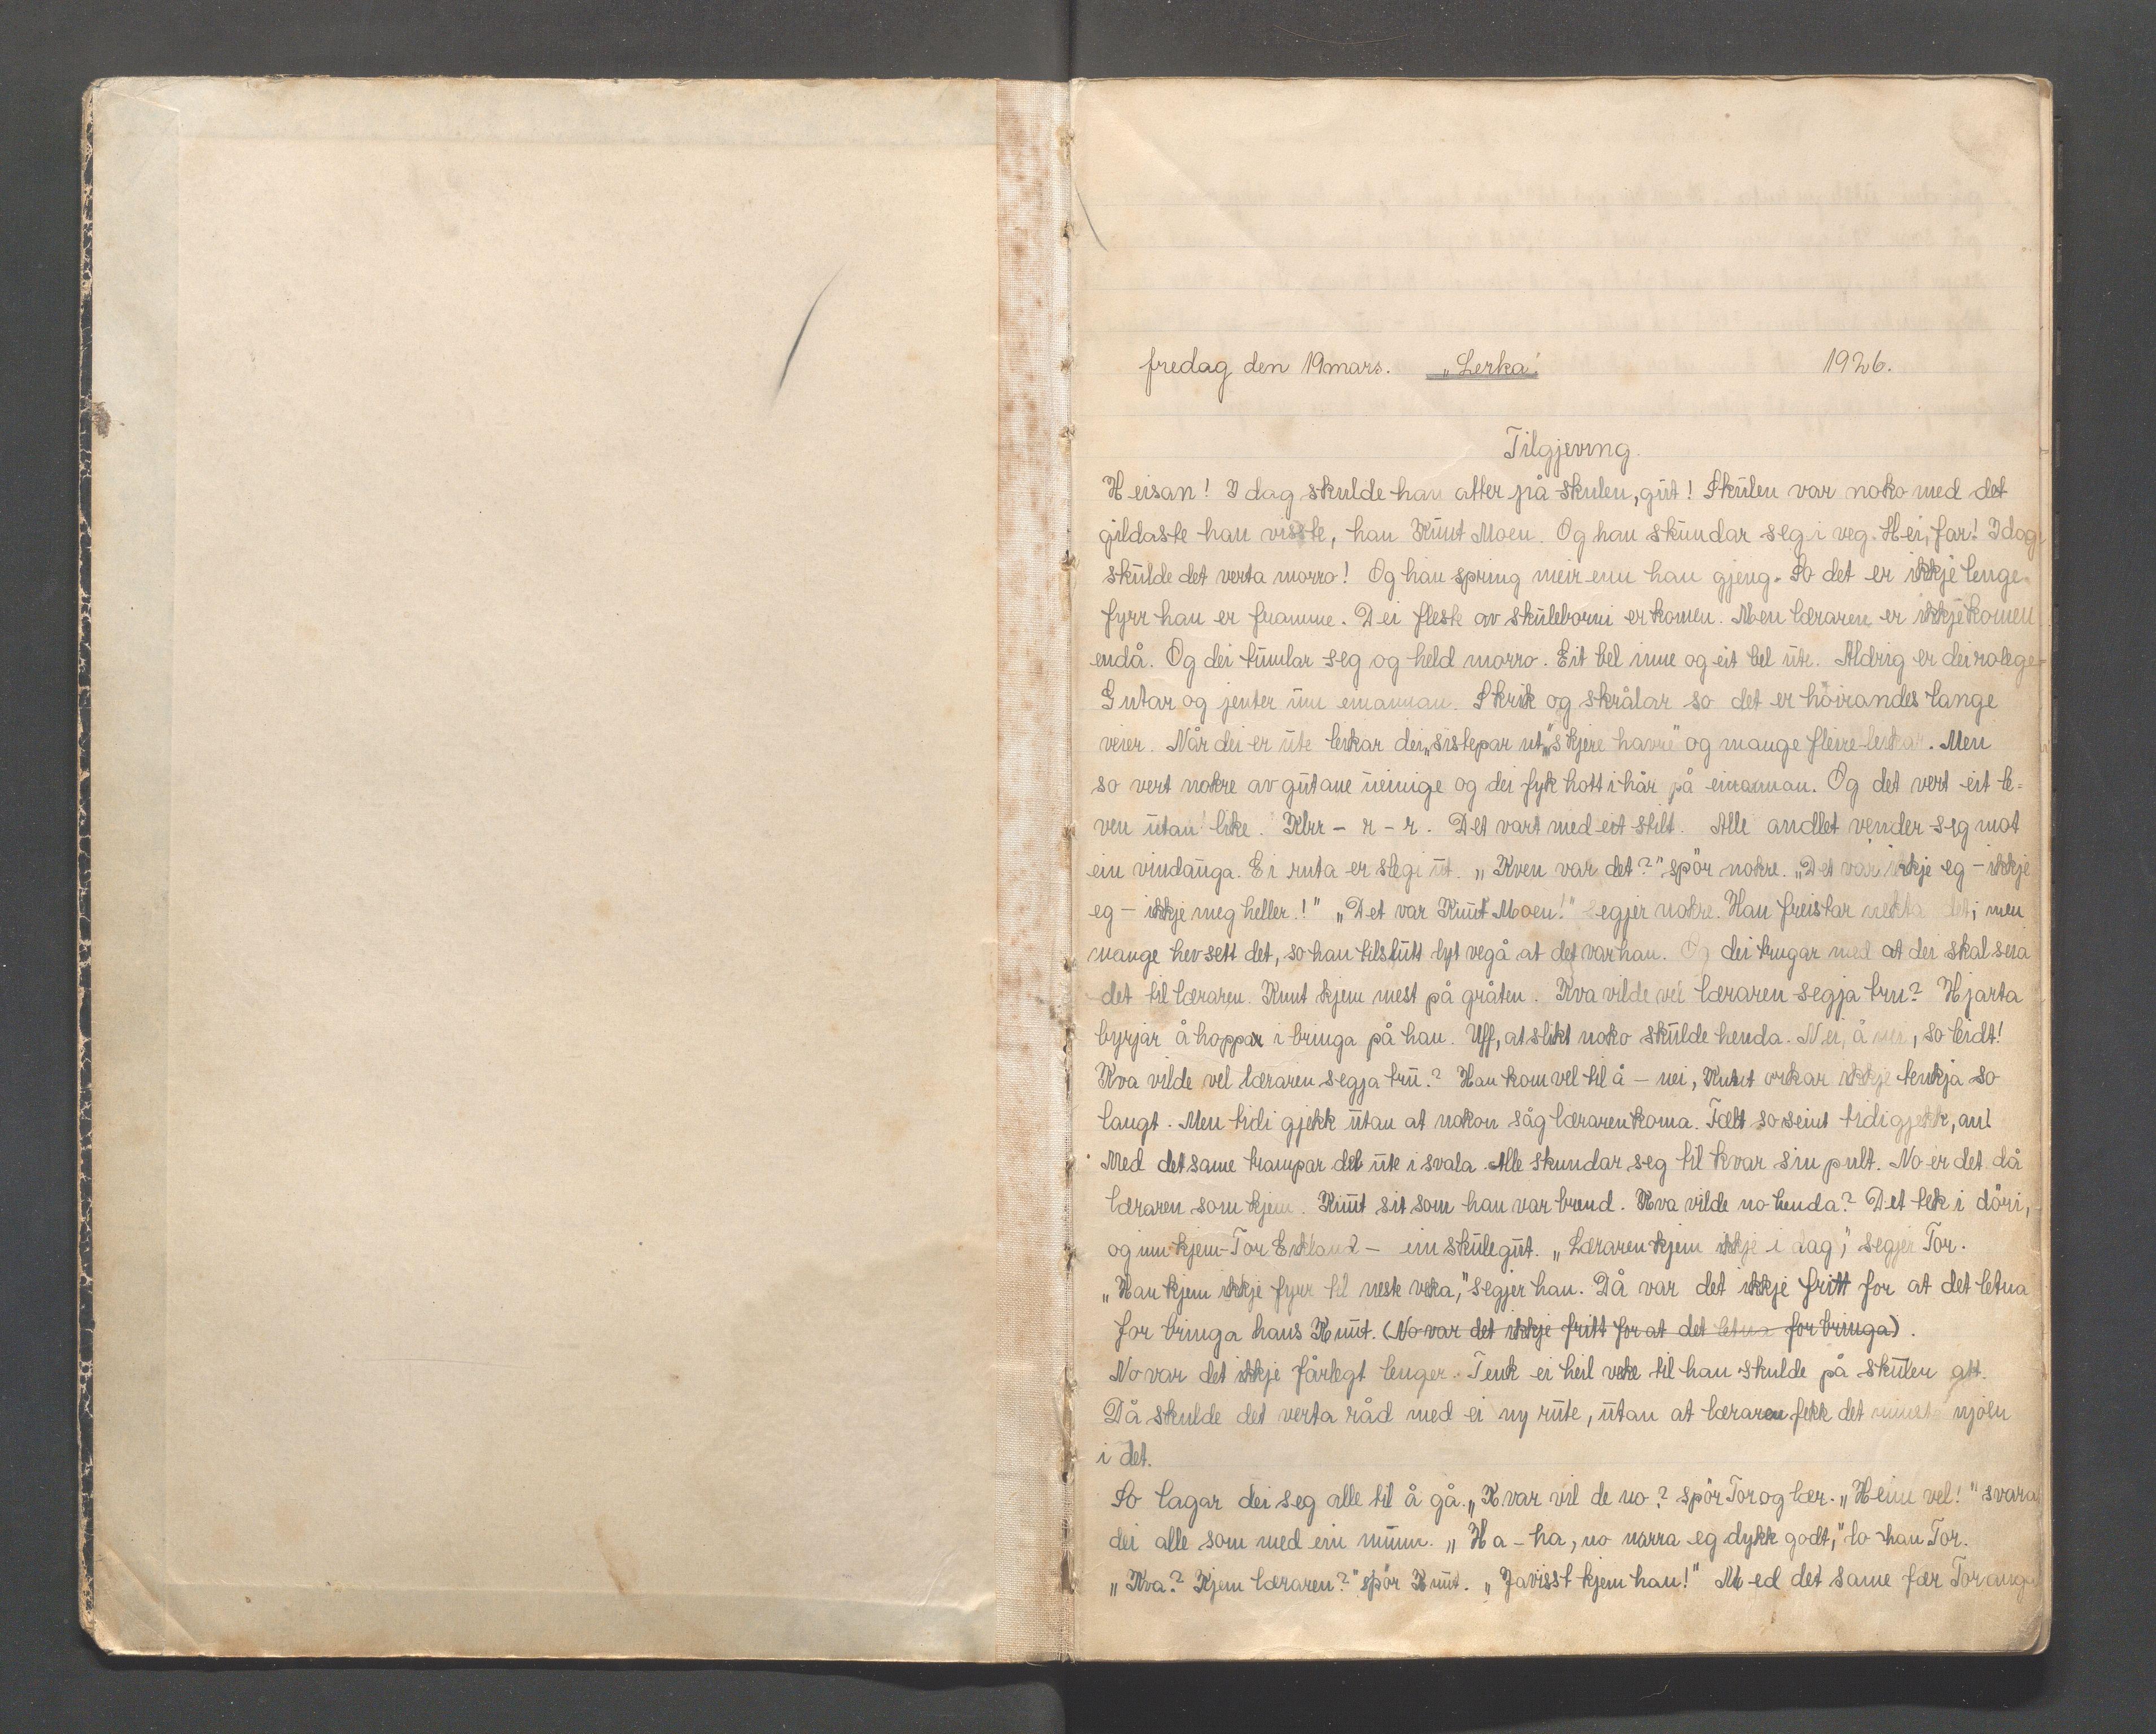 fredag den 19 mars. „Lerka". 1926.
Tilgjeving.
Heisan! I dag skulde han atter på skulen, gut! Skulen var noko med det
gildaste han visste, han Knut Moen. Og han skundar seg i veg. Hei, far! I dag
skulde det verta morro! Og han spring meir enn han gjeng. So det er ikkje lenge
fyrr han er framme. Dei fleste av skuleborni er komen. Men læraren er ikkje komen
endå. Og dei tumlar seg og held morro. Eit bel inne og eit bel ute. Aldrig er dei rolege
Gutar og jenter um einannan. Skrik og skrålar so det er höirandes lange
veier. Når dei er ute leikar dei „sistepar ut", „skjere havre" og mange fleire leikar. Men
so vert nokre av gutane ueinige og dei fyk hott i hår på einannan. Og det vert eit le=
ven utan like. Klirr - r - r. Det vart med eit stilt. Alle andlet vender seg mot
ein vindauga. Ei ruta er slegi ut. „Kven var det?" spör nokre. „Det var ikkje eg - ikkje
eg - ikkje meg heller.!" „Det var Knut Moen!" segjer nokre. Han freistar nekta det; men
mange hev sett det, so han tilslutt lyt vegå at det var han. Og dei trugar med at dei skal seia
det til læraren. Knut kjem mest på gråten. Kva vilde vel læraren segja tru? Hjarta
byrjar å hoppar i bringa på han. Uff, at slikt noko skulde henda. Nei, å nei, so leidt!
Kva vilde vel læraren segja tru.? Han kom vel til å - nei, Knut orkar ikkje tenkja so
langt. Men tidi gjekk utan at nokon såg læraren koma. Tælt so seint tidi gjekk, an!
Med det same trampar det ute i svala. Alle skundar seg til kvar sin pult. No er det då
læraren som kjem. Knut sit som han var brend. Kva vilde no henda? Det tek i döri,
og inn kjem - Tor Eikland - ein skulegut. „Læraren kjem ikkje i dag", segjer Tor.
„Han kjem ikkje fyrr til neste veka," segjer han. Då var det ikkje fritt for at det letna
for bringa hans Knut. (No var det ikkje fritt for at det letna for bringa).
No var det ikkje fårlegt lenger. Tenk ei heil veke til han skulde på skulen att.
Då skulde det verta råd med ei ny rute, utan at læraren fekk det minste njosn
i det.
So lagar dei seg alle til å gå. „Kvar vil de no? spör Tor og lær. „Heim vel!" svara
dei alle som med ein munn. „Ha - ha, no narra eg dykk godt," lo han Tor.
„Kva? Kjem læraren?" spör Knut. „Javisst kjem han!" Med det same fær Tor auga